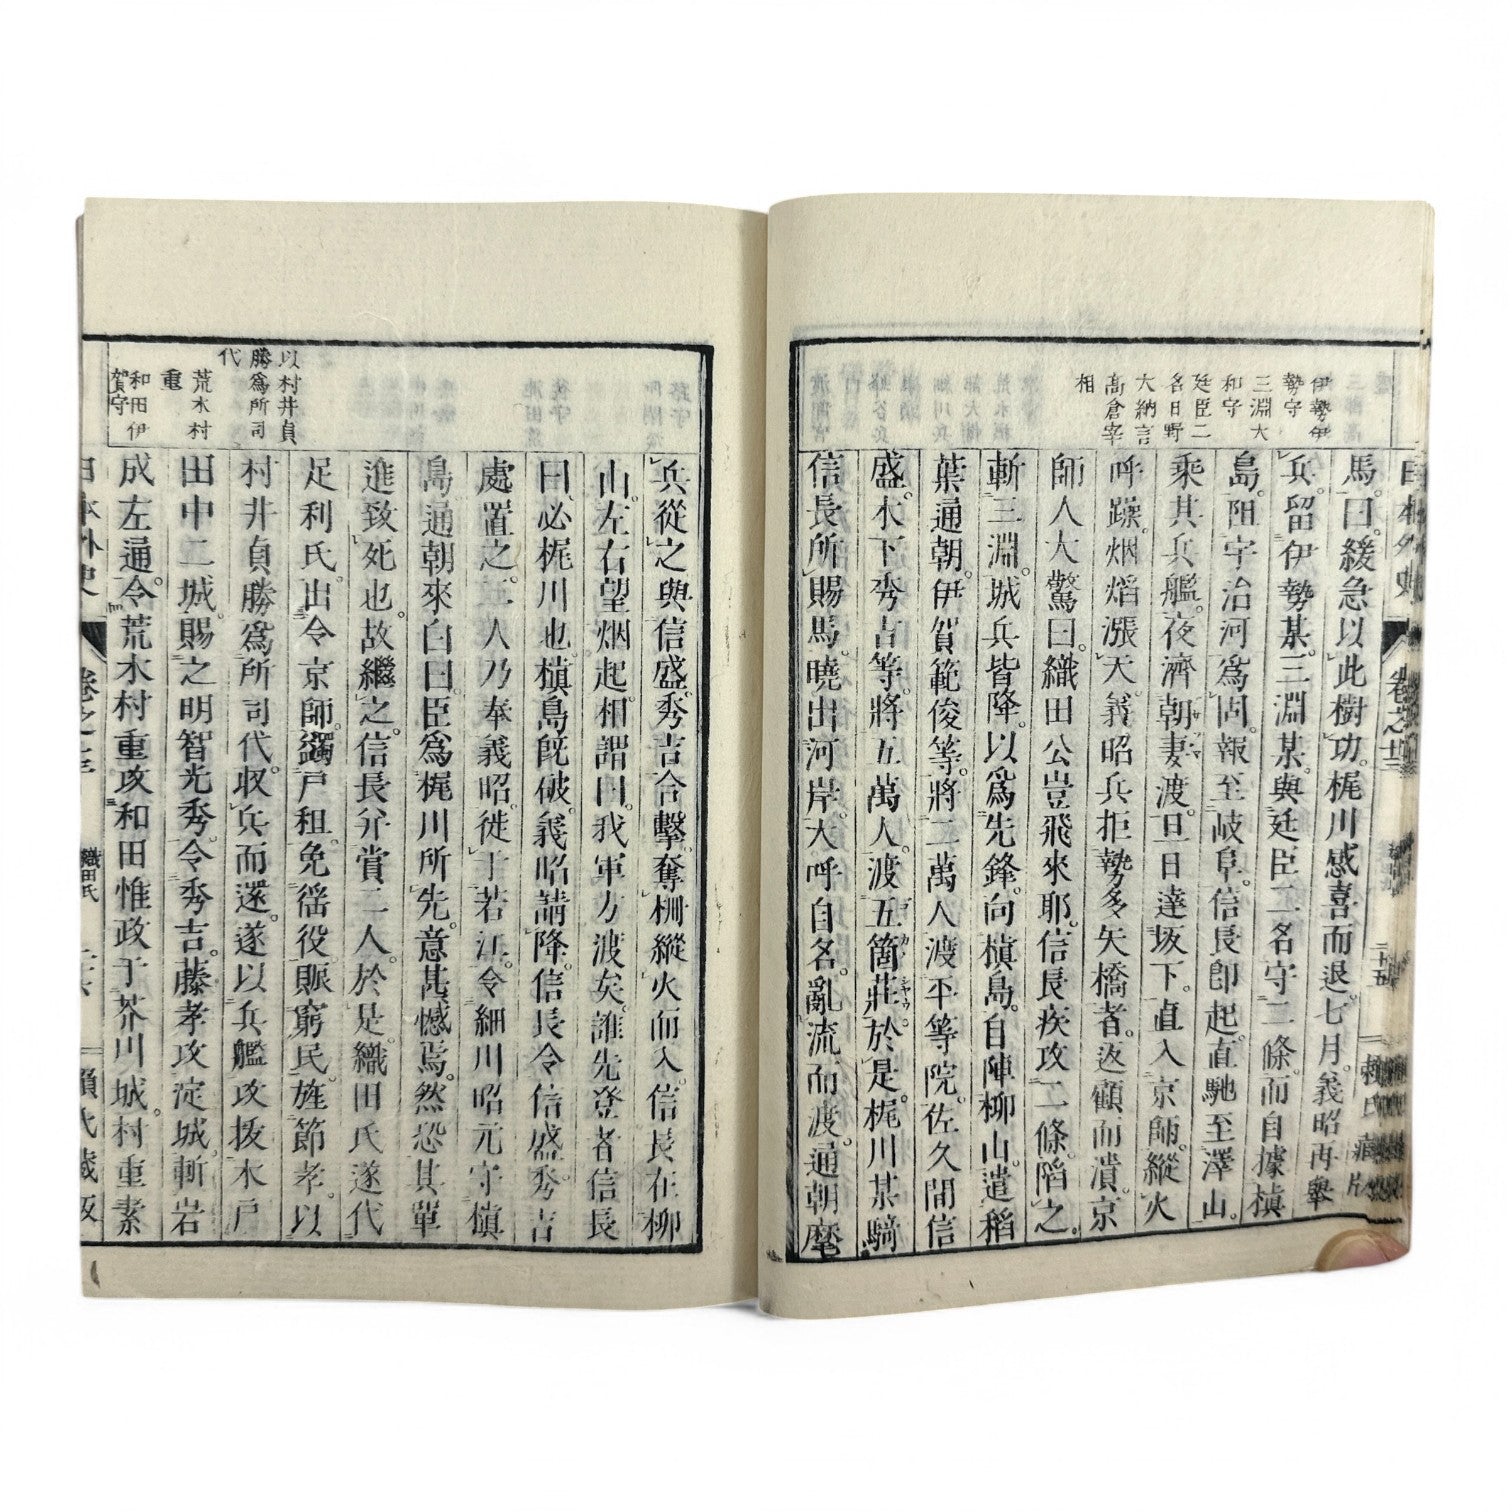 伊勢伊
勢守
三淵大
和守
廷臣二
名日野
大納言
高倉宰
相
馬。曰。緩急以此樹功。梶川感喜而退。七月。義昭再舉
兵。留伊勢某。三淵某。與廷臣二名守二條。而自據槙
島。阻宇治河爲固。報至岐阜。信長卽起。直馳至澤山。
乘其兵艦。夜濟朝妻渡。旦日達坂下。直入京師。縱火
呼躁。烟熖漲天。義昭兵拒勢多矢橋者。返顧而潰。京
師人大驚曰。織田公豈飛來耶。信長疾攻二條。陷之。
斬三淵。城兵皆降。以爲先鋒。向槙島。自陣柳山。遣稻
葉通朝。伊賀範俊等。將二萬人渡平等院。佐久間信
盛。木下秀吉等。將五萬人。渡五箇莊。於是。梶川某騎
信長所賜馬。曉出河岸。大呼自名。亂流而渡。通朝麾
以村井貞
勝爲所司
代
荒木村
重
和田伊
賀守
兵從之。與信盛。秀吉合擊。奪柵縱火而入。信長在柳
山。左右望烟起。相謂曰。我軍方渡矣。誰先登者。信長
曰。必梶川也。槙島既破。義昭請降。信長令信盛。秀吉
處置之。二人乃奉義昭徙于若江。令細川昭元守槙
島。通朝來白曰。臣爲梶川所先。意甚憾焉。然恐其單
進致死也。故繼之。信長幷賞二人。於是。織田氏遂代
足利氏。出令京師。蠲戸租。免徭役。賑窮民。旌節孝。以
村井貞勝爲所司代。收兵而還。遂以兵艦攻拔木戸
田中二城。賜之明智光秀。令秀吉。藤孝攻淀城。斬岩
成左通。令荒木村重攻和田惟政于芥川城。村重素
日本外史
卷之十三
織田氏
二十六
賴氏藏版